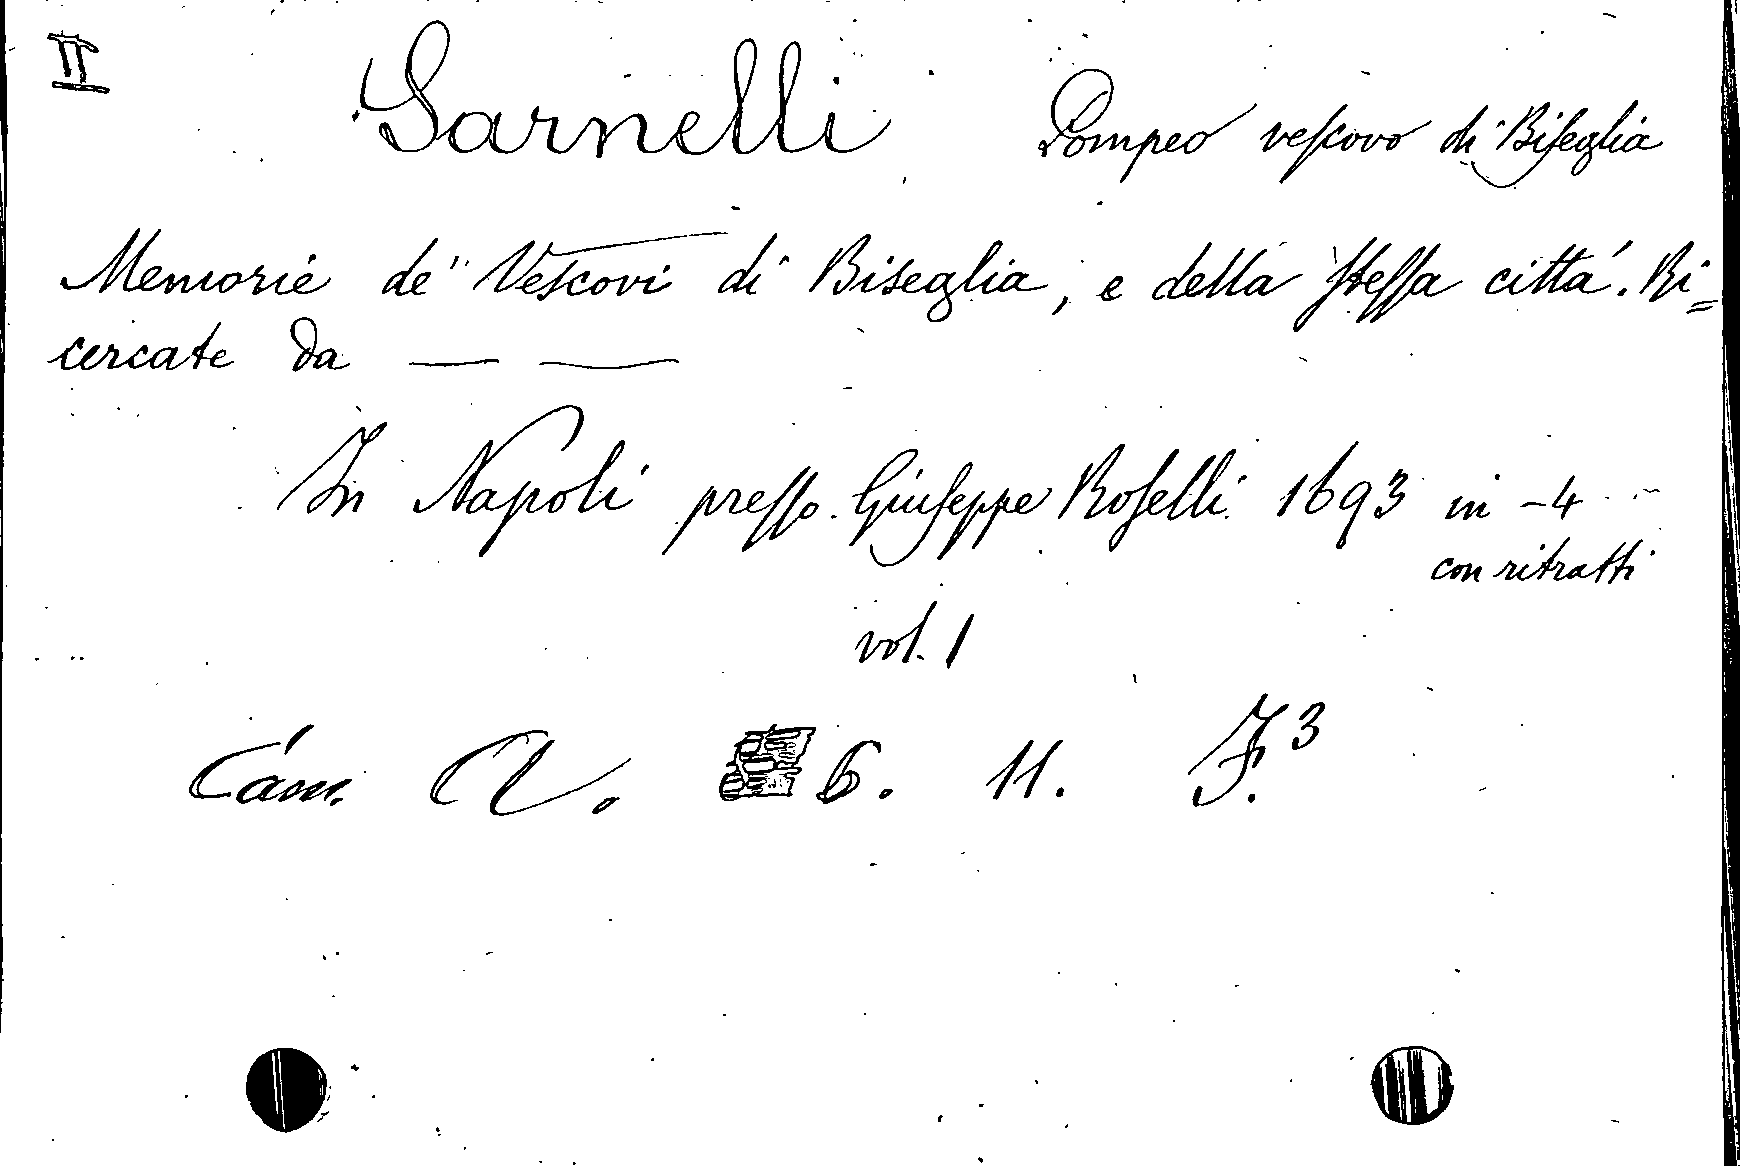 II
Sarnelli Pompeo vescovo di Biseglia
Memorie de' Vescovi di Biseglia, e della stessa cittá. Ri=
cercate da — —
In Napoli presso Giuseppe Roselli 1693 in-4
con ritratti
vol. 1
Cam. V. 6. 11. F.3